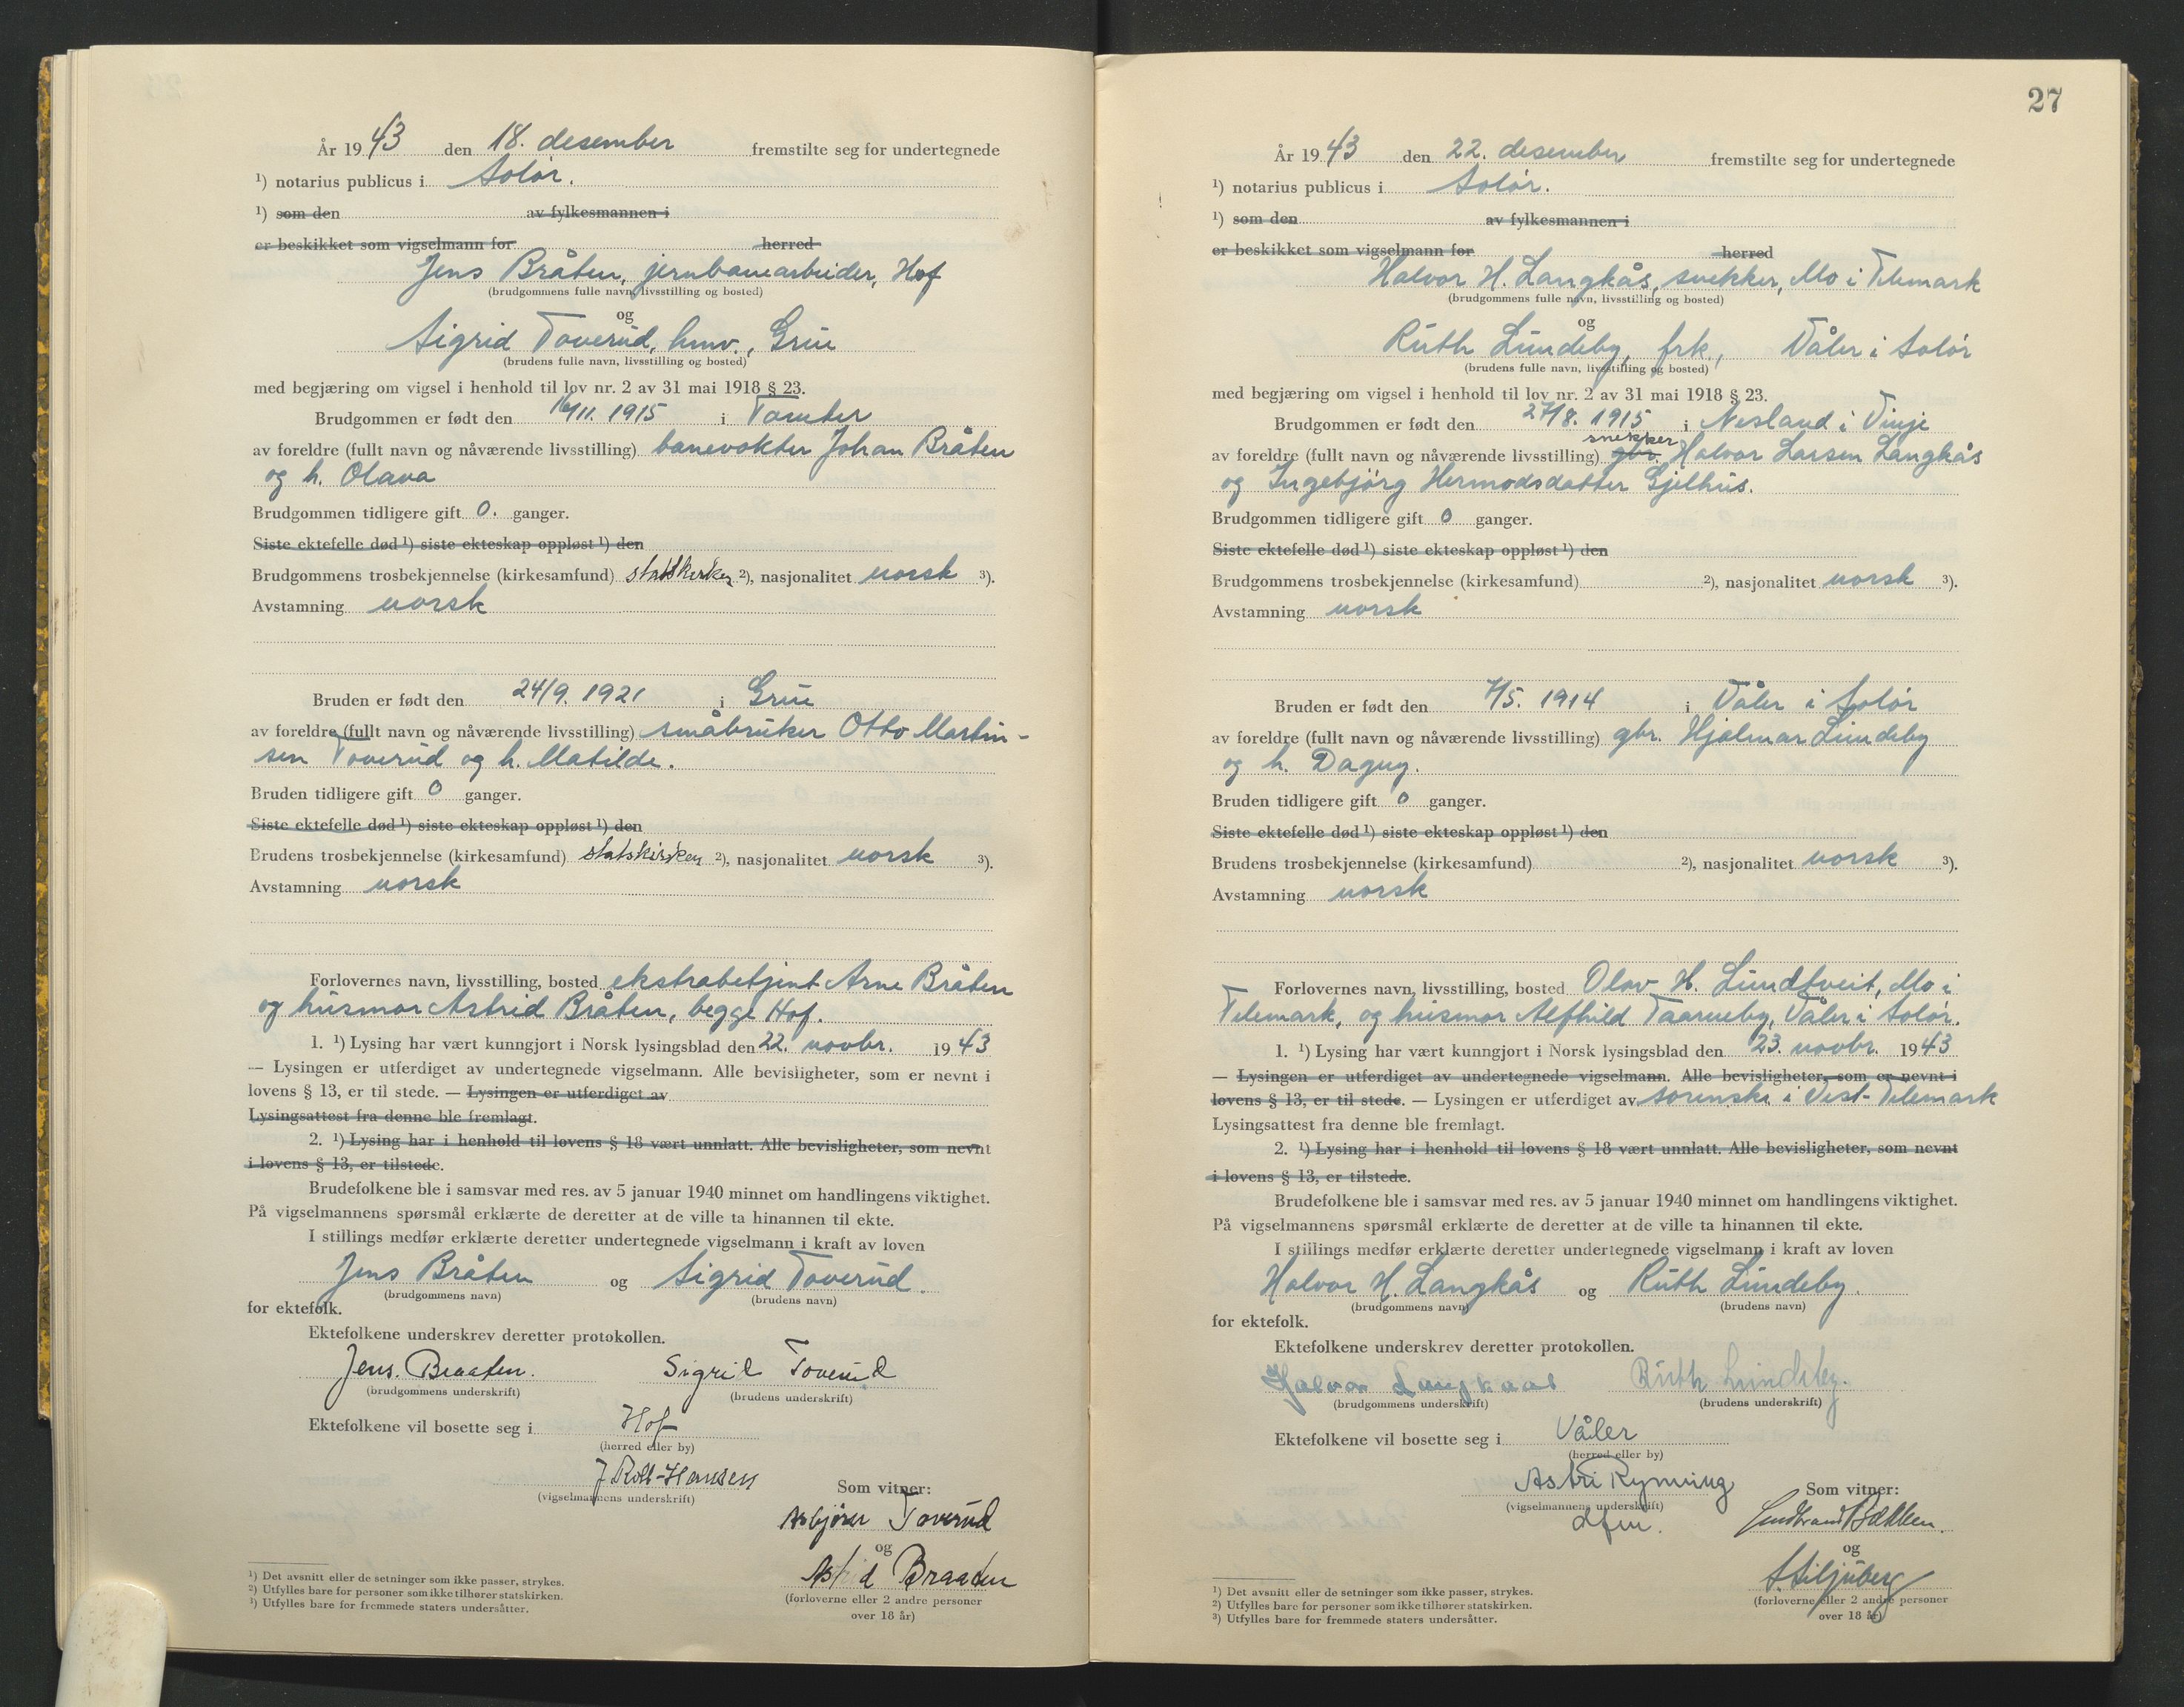 År 1943 den 18. desember fremstilte seg for undertegnede
¹) notarius publicus i Solør.
¹) som den av fylkesmannen i
er beskikket som vigselmann for herred
Jens Bråten, jernbanearbeider, Hof
(brudgommens fulle navn, livsstilling og bosted)
og
Sigrid Toverud, hmv., Grue
(brudens fulle navn, livsstilling og bosted)
med begjæring om vigsel i henhold til lov nr. 2 av 31 mai 1918 § 23.
Brudgommen er født den 16/11. 1915 i Tomter
av foreldre (fullt navn og nåværende livsstilling) banevokter Johan Bråten
og h. Olava
Brudgommen tidligere gift 0. ganger.
Siste ektefelle død ¹) siste ekteskap oppløst ¹) den
Brudgommens trosbekjennelse (kirkesamfund) statskirken ²), nasjonalitet norsk ³).
Avstamning norsk
Bruden er født den 24/9. 1921 i Grue
av foreldre (fullt navn og nåværende livsstilling) småbruker Otto Martin-
sen Toverud og h. Matilde.
Bruden tidligere gift 0 ganger.
Siste ektefelle død ¹) siste ekteskap oppløst ¹) den
Brudens trosbekjennelse (kirkesamfund) statskirken ²), nasjonalitet norsk ³).
Avstamning norsk
Forlovernes navn, livsstilling, bosted ekstrabetjent Arne Bråten
og husmor Astrid Bråten, begge Hof.
1. ¹) Lysing har vært kunngjort i Norsk lysingsblad den 22. novbr. 1943
— Lysingen er utferdiget av undertegnede vigselmann. Alle bevisligheter, som er nevnt i
lovens § 13, er til stede. — Lysingen er utferdiget av
Lysingsattest fra denne ble fremlagt.
2. ¹) Lysing har i henhold til lovens § 18 vært unnlatt. Alle bevisligheter, som nevnt
i lovens § 13, er tilstede.
Brudefolkene ble i samsvar med res. av 5 januar 1940 minnet om handlingens viktighet.
På vigselmannens spørsmål erklærte de deretter at de ville ta hinannen til ekte.
I stillings medfør erklærte deretter undertegnede vigselmann i kraft av loven
Jens Bråten og Sigrid Toverud.
(brudgommens navn) (brudens navn)
for ektefolk.
Ektefolkene underskrev deretter protokollen.
Jens. Braaten. Sigrid Toverud
(brudgommens underskrift) (brudens underskrift)
Ektefolkene vil bosette seg i Hof
(herred eller by)
J Roll-Hansen
(vigselmannens underskrift)
Som vitner:
Asbjørn Toverud
og
Astrid Braaten
(forloverne eller 2 andre personer
over 18 år)
¹) Det avsnitt eller de setninger som ikke passer, strykes.
²) Utfylles bare for personer som ikke tilhører statskirken.
³) Utfylles bare for fremmede staters undersåtter.
27
År 1943 den 22. desember fremstilte seg for undertegnede
¹) notarius publicus i Solør.
¹) som den av fylkesmannen i
er beskikket som vigselmann for herred
Halvor H. Langkås, snekker, Mo i Telemark
(brudgommens fulle navn, livsstilling og bosted)
og
Ruth Lundeby, frk., Våler i Solør
(brudens fulle navn, livsstilling og bosted)
med begjæring om vigsel i henhold til lov nr. 2 av 31 mai 1918 § 23.
Brudgommen er født den 27/8. 1915 i Nesland i Vinje
snekker
av foreldre (fullt navn og nåværende livsstilling) gbr. Halvor Larsen Langkås
og Ingebjørg Hermodsdatter Gjelhus.
Brudgommen tidligere gift 0 ganger.
Siste ektefelle død ¹) siste ekteskap oppløst ¹) den
Brudgommens trosbekjennelse (kirkesamfund) ²), nasjonalitet norsk ³).
Avstamning norsk
Bruden er født den 7/5. 1914 i Våler i Solør
av foreldre (fullt navn og nåværende livsstilling) gbr. Hjalmar Lundeby
og h. Dagny.
Bruden tidligere gift 0 ganger.
Siste ektefelle død ¹) siste ekteskap oppløst ¹) den
Brudens trosbekjennelse (kirkesamfund) ²), nasjonalitet norsk ³).
Avstamning norsk
Forlovernes navn, livsstilling, bosted Olav H. Lundtveit, Mo i
Telemark, og husmor Alfhild Taarneby, Våler i Solør.
1. ¹) Lysing har vært kunngjort i Norsk lysingsblad den 23. novbr. 1943
— Lysingen er utferdiget av undertegnede vigselmann. Alle bevisligheter, som er nevnt i
lovens § 13, er til stede. — Lysingen er utferdiget av sorenskr. i Vest-Telemark
Lysingsattest fra denne ble fremlagt.
2. ¹) Lysing har i henhold til lovens § 18 vært unnlatt. Alle bevisligheter, som nevnt
i lovens § 13, er tilstede.
Brudefolkene ble i samsvar med res. av 5 januar 1940 minnet om handlingens viktighet.
På vigselmannens spørsmål erklærte de deretter at de ville ta hinannen til ekte.
I stillings medfør erklærte deretter undertegnede vigselmann i kraft av loven
Halvor H. Langkås og Ruth Lundeby.
(brudgommens navn) (brudens navn)
for ektefolk.
Ektefolkene underskrev deretter protokollen.
Halvor Langkaas Ruth Lundeby.
(brudgommens underskrift) (brudens underskrift)
Ektefolkene vil bosette seg i Våler
(herred eller by)
Astri Rynning
(vigselmannens underskrift)
dfm.
Som vitner:
og
(forloverne eller 2 andre personer
over 18 år)
¹) Det avsnitt eller de setninger som ikke passer, strykes.
²) Utfylles bare for personer som ikke tilhører statskirken.
³) Utfylles bare for fremmede staters undersåtter.